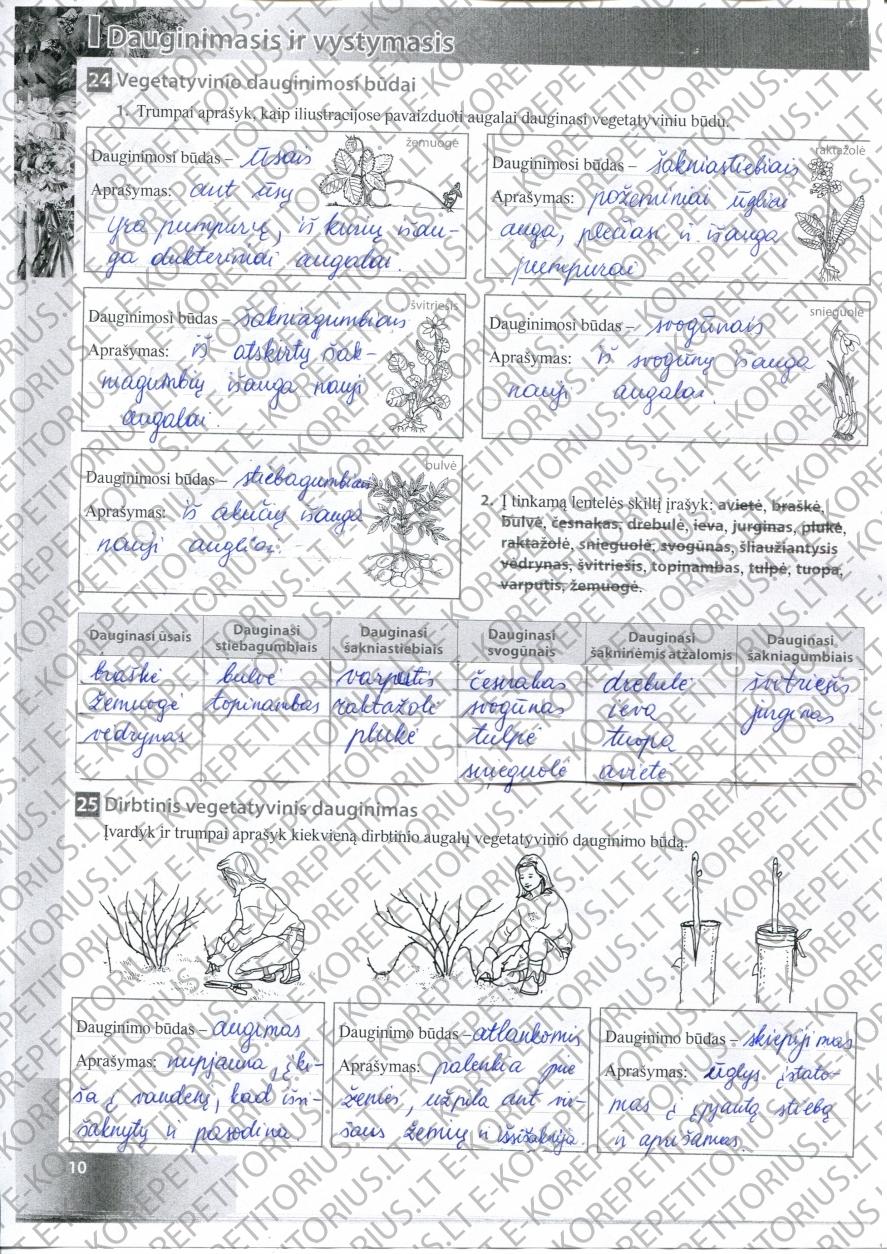 I Dauginimasis ir vystymasis
24 Vegetatyvinio dauginimosi būdai
1. Trumpai aprašyk, kaip iliustracijose pavaizduoti augalai dauginasi vegetatyviniu būdu.
žemuogė
Dauginimosi būdas – Ūsais
Aprašymas: ant ūsų
yra pumpurų, iš kurių išau-
ga dukteriniai augalai.
raktažolė
Dauginimosi būdas – šakniastiebiais
Aprašymas: požeminiai ūgliai
auga, plečiasi ir išauga
pumpurai
švitriešis
Dauginimosi būdas – šakniagumbiais
Aprašymas: iš atskirtų šak-
niagumbių išauga nauji
augalai.
snieguolė
Dauginimosi būdas – svogūnais
Aprašymas: iš svogūnų išauga
nauji augalai.
bulvė
Dauginimosi būdas – stiebagumbiais
Aprašymas: iš akučių išauga
nauji
2. Į tinkamą lentelės skiltį įrašyk: avietė, braškė,
bulvė, česnakas, drebulė, ieva, jurginas, plukė,
raktažolė, snieguolė, svogūnas, šliaužiantysis
vėdrynas, švitriešis, topinambas, tulpė, tuopa,
varputis, žemuogė.
Dauginasi ūsais Dauginasi stiebagumbiais Dauginasi šakniastiebiais Dauginasi svogūnais Dauginasi šakninėmis atžalomis Dauginasi šakniagumbiais
braškė bulvė varputis česnakas drebulė švitriešis
žemuogė topinambas raktažolė svogūnas ieva jurginas
vėdrynas plukė tulpė tuopa
snieguolė avietė
25 Dirbtinis vegetatyvinis dauginimas
Įvardyk ir trumpai aprašyk kiekvieną dirbtinio augalų vegetatyvinio dauginimo būdą.
Dauginimo būdas – augimas
Aprašymas: nupjauna, įki-
ša į vandenį, kad išsi-
šaknytų ir pasodina
Dauginimo būdas – atlankomis
Aprašymas: palenkia prie
žemės, užpila ant vir-
šaus žemių ir išsišaknija.
Dauginimo būdas – skiepijimas
Aprašymas: ūglys įstato-
mas į įpjautą stiebą
ir aprišamas.
10
E-KOREPETITORIUS.LT